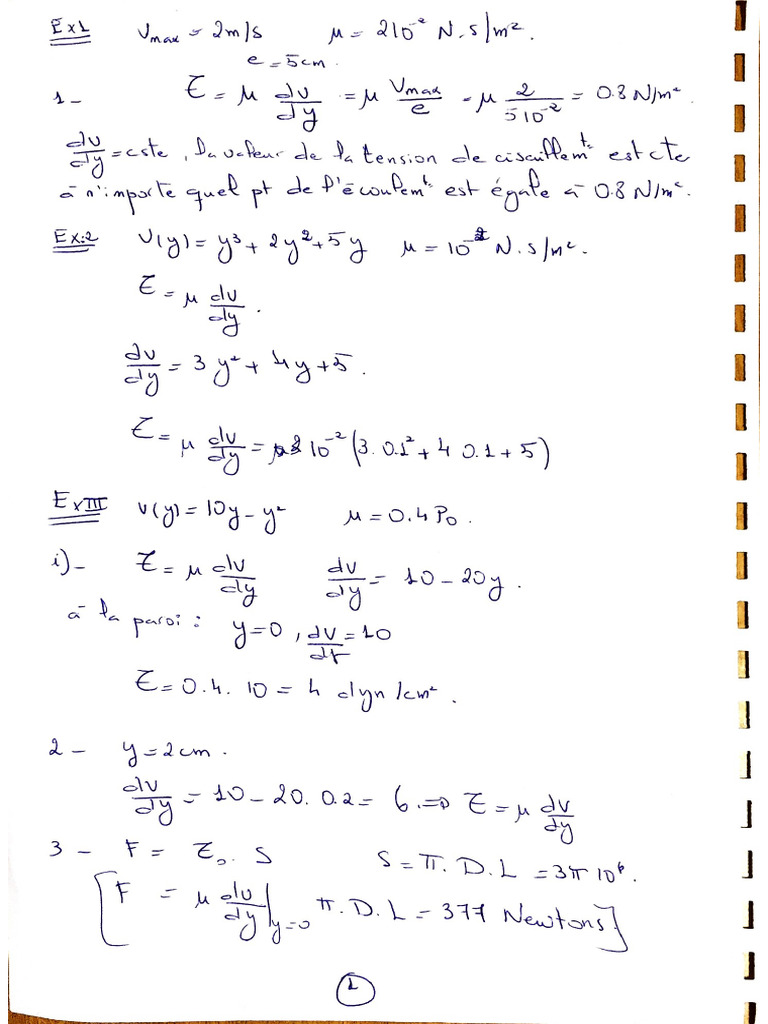 Ex1 Vmax = 2m/s μ = 2 10⁻² N.s/m².
e = 5cm.
1- τ = μ dv/dy = μ Vmax/e = μ 2/5 10⁻² = 0.8 N/m².
dv/dy = cste, la valeur de la tension de cisaillemᵗ est cte
à n'importe quel pt de l'écoulemᵗ est égale à 0.8 N/m².
Ex:2 V(y) = y³ + 2y² + 5y μ = 10⁻² N.s/m².
τ = μ dv/dy.
dv/dy = 3y² + 4y + 5.
τ = μ dv/dy = 10⁻² (3. 0.1² + 4 0.1 + 5)
Ex III v(y) = 10y - y² μ = 0.4 Po.
i)- τ = μ dv/dy dv/dy = 10 - 20y.
à la paroi : y = 0, dv/dr = 10
τ = 0.4. 10 = 4 dyn/cm².
2 - y = 2cm.
dv/dy = 10 - 20. 0.2 = 6. ⇒ τ = μ dv/dy
3 - F = τ₀. S S = π. D. L = 3π 10⁶.
[F = μ dv/dy|y=0 π. D. L = 377 Newtons]
1